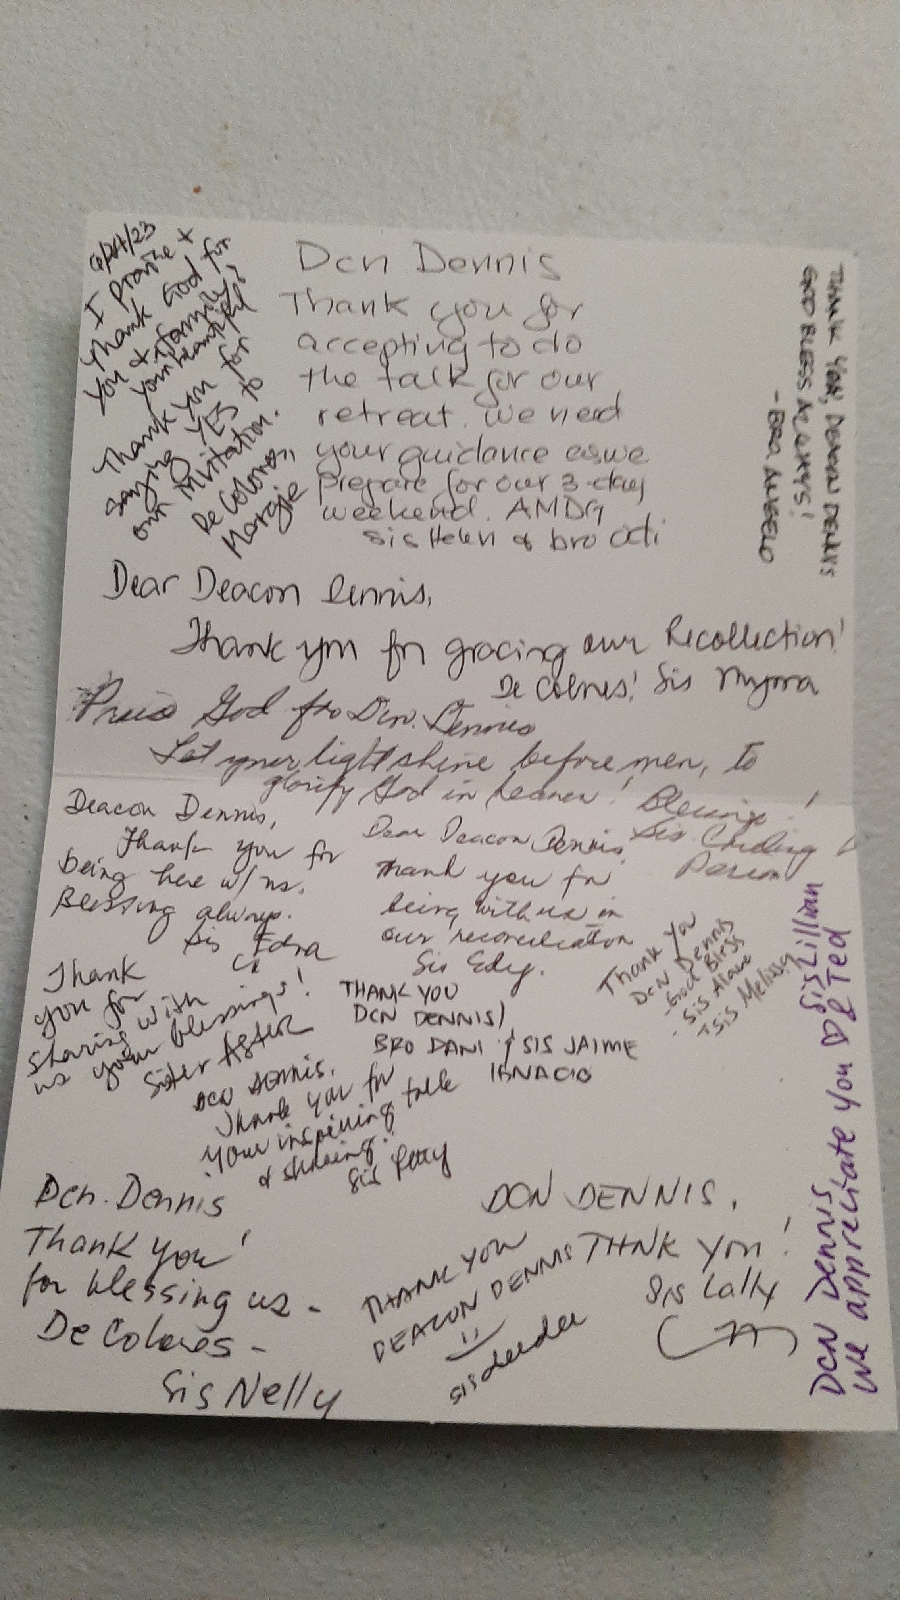 6/24/23
I praise +
Thank God for
you & your family's
your beautiful
Thank you for
saying YES to
our invitation.
De Colores,
Margie
Dcn Dennis
Thank you for
accepting to do
the talk for our
retreat. we need
your guidance as we
prepare for our 3-day
weekend. AMDG
Sis Helen & bro
THANK YOU, DEACON DENNIS
GOD BLESS ALWAYS!
- BRO. ANGELO
Dear Deacon Dennis,
Thank you for gracing our Recollection!
De Colores! Sis Myrna
Praise God for Dcn. Dennis
Let your light shine before men, to
glorify God in heaven! Blessings!
Sis
Deacon Dennis,
Thank you for
being here w/ us.
Blessing always.
Sis Edna
Dear Deacon Dennis
Thank you for
being with us in
our reconciliation
Sis Edy.
Thank You
Dcn Dennis
- God Bless
- Sis
- Sis Melissa
Thank
you for
sharing with
us your blessings!
Sister
THANK YOU
DCN DENNIS!
BRO DANI & SIS JAIME
IGNACIO
DCN Dennis,
Thank you for
your inspiring talk
& sharing!
Sis
Dcn. Dennis
Thank you!
for blessing us -
De Colores -
Sis Nelly
THANK YOU
DEACON DENNIS
Sis
DCN DENNIS,
THNK YOU!
Sis Lally
DCN Dennis
We appreciate you
Sis Lillian
& Ted